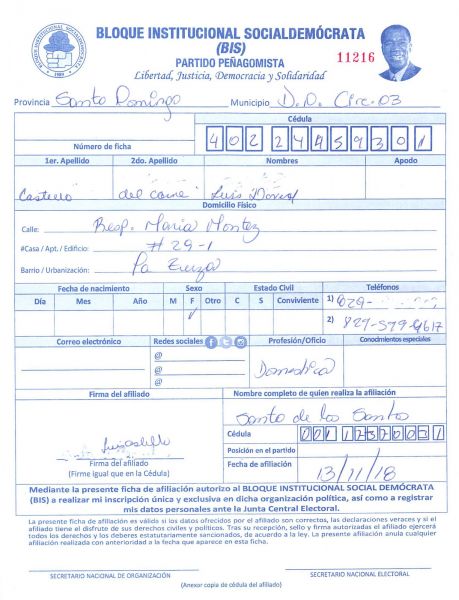 BLOQUE INSTITUCIONAL SOCIALDEMÓCRATA
(BIS)
PARTIDO PEÑAGOMISTA
Libertad, Justicia, Democracia y Solidaridad
11216
BLOQUE INSTITUCIONAL SOCIALDEMOCRATA
1989
Provincia Santo Domingo Municipio D.N. Circ. 03
Cédula
Número de ficha 40224459301
1er. Apellido 2do. Apellido Nombres Apodo
del Luis
Domicilio Físico
Calle: Resp. Maria Montez
#Casa / Apt. / Edificio: # 29-1
Barrio / Urbanización: La
Fecha de nacimiento Sexo Estado Civil Teléfonos
Día Mes Año M F Otro C S Conviviente 1) 829-
2) 829-579-9617
Correo electrónico Redes sociales Profesión/Oficio Conocimientos especiales
@
@
@
Domestica
Firma del afiliado Nombre completo de quien realiza la afiliación
Santo de los Santos
Cédula
Posición en el partido
Firma del afiliado Fecha de afiliación 13/11/18
(Firme igual que en la Cédula)
Mediante la presente ficha de afiliación autorizo al BLOQUE INSTITUCIONAL SOCIAL DEMÓCRATA
(BIS) a realizar mi inscripción única y exclusiva en dicha organización política, así como a registrar
mis datos personales ante la Junta Central Electoral.
La presente ficha de afiliación es válido si los datos ofrecidos por el afiliado son correctos, las declaraciones veraces y si el
afiliado tiene el disfrute de sus derechos civiles y políticos. Tras su recepción, sello y firma autorizadas el afiliado ejercerá
todos los derechos y los deberes estatutariamente sancionados, de acuerdo a la ley. La presente afiliación anula cualquier
afiliación realizada con anterioridad a la fecha que aparece en esta ficha.
SECRETARIO NACIONAL DE ORGANIZACIÓN SECRETARIO NACIONAL ELECTORAL
(Anexar copia de cédula del afiliado)